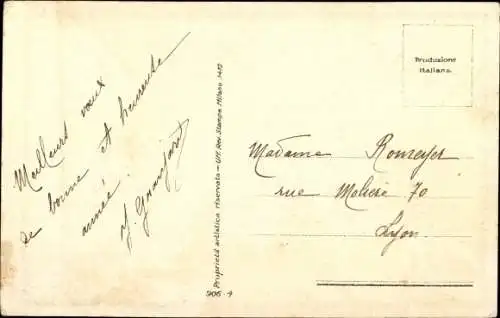 Meilleurs vœux
de bonne et heureuse
année.
Proprietà artistica riservata - Uff. Rev. Stampa Milano 1452
906-4
Produzione
Italiana.
Madame Romeyer
rue Molière 70
Lyon.